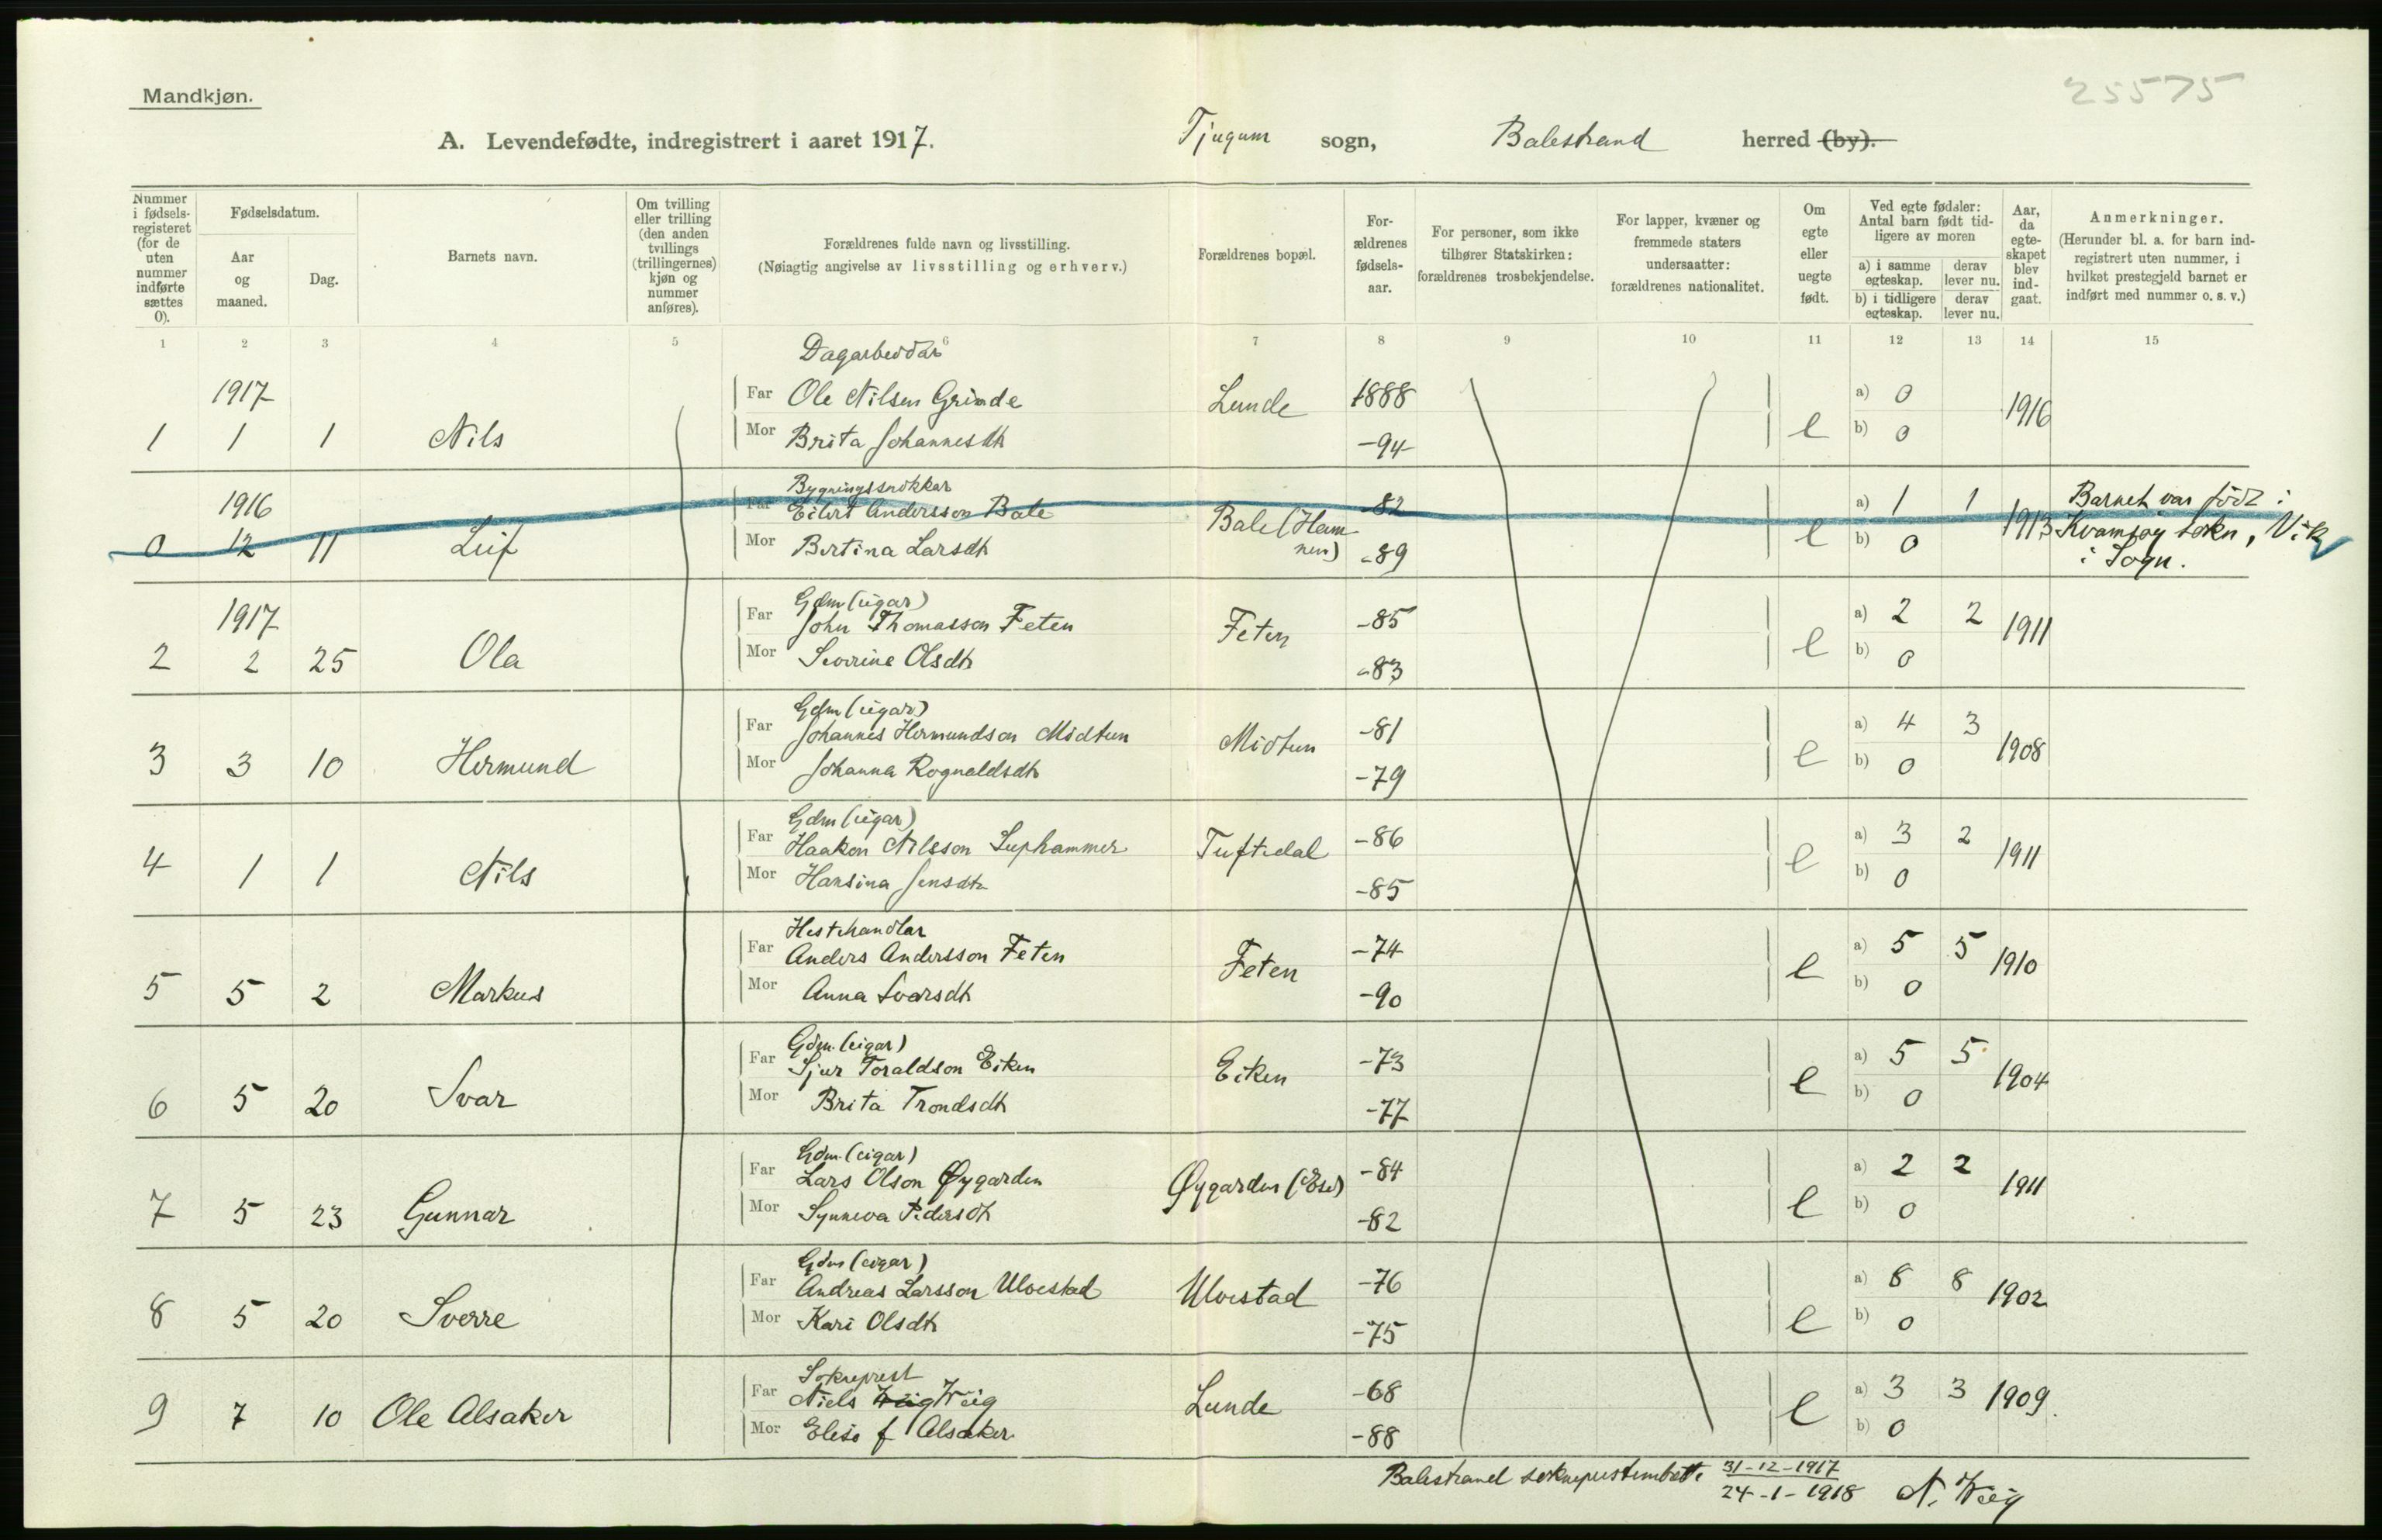 25575
Mandkjøn.
A. Levendefødte, indregistrert i aaret 1917. Tjugum sogn, Balestrand herred (by).
Nummer i fødselsregisteret (for de uten nummer indførte sættes 0).
Fødselsdatum.
Aar og maaned.
Dag.
Barnets navn.
Om tvilling eller trilling (den anden tvillings (trillingernes) kjøn og nummer anføres).
Forældrenes fulde navn og livsstilling.
(Nøiagtig angivelse av livsstilling og erhverv.)
Forældrenes bopæl.
Forældrenes fødselsaar.
For personer, som ikke tilhører Statskirken: forældrenes trosbekjendelse.
For lapper, kvæner og fremmede staters undersaatter: forældrenes nationalitet.
Om egte eller uegte født.
Ved egte fødsler: Antal barn født tidligere av moren
a) i samme egteskap. derav lever nu.
b) i tidligere egteskap. derav lever nu.
Aar, da egteskapet blev indgaat.
Anmerkninger.
(Herunder bl. a. for barn indregistrert uten nummer, i hvilket prestegjeld barnet er indført med nummer o. s. v.)
1 2 3 4 5 6 7 8 9 10 11 12 13 14 15
Dagarbeidar
1917 Far Ole Nilsen Grinde Lunde 1888 a) 0 1916
1 1 1 Nils Mor Brita Johannesdt -94 e b) 0
Bygningssnikkar
1916 Far Eilert Andersson Bale Bale (Ham- -82 a) 1 1 1913 Barnet var född i
0 12 11 Leif Mor Bertina Larsdt nen) -89 e b) 0 Kvamsøy sokn, Vik
i Sogn.
Gdm (eigar)
1917 Far John Thomasson Feten Feten -85 a) 2 2 1911
2 2 25 Ola Mor Severine Olsdt -83 e b) 0
Gdm (eigar)
Far Johannes Hermundson Midtun Midtun -81 a) 4 3 1908
3 3 10 Hermund Mor Johanna Rognaldsdt -79 e b) 0
Gdm (eigar)
Far Haakon Nilsson Suphammer Tuftedal -86 a) 3 2 1911
4 1 1 Nils Mor Hansina Jensdt -85 e b) 0
Hestehandlar
Far Anders Andersson Feten Feten -74 a) 5 5 1910
5 5 2 Markus Mor Anna Ivarsdt -90 e b) 0
Gdm. (eigar)
Far Sjur Toraldson Eiken Eiken -73 a) 5 5 1904
6 5 20 Ivar Mor Brita Trondsdt -77 e b) 0
Gdm. (eigar)
Far Lars Olson Øygarden Øygarden (Ese) -84 a) 2 2 1911
7 5 23 Gunnar Mor Synneva Pedersdt -82 e b) 0
Gdm (eigar)
Far Andreas Larsson Ulvestad Ulvestad -76 a) 8 8 1902
8 5 20 Sverre Mor Kari Olsdt -75 e b) 0
Sokneprest
Far Niels Weig Lunde -68 a) 3 3 1909.
9 7 10 Ole Alsaker Mor Elise f Alsaker -88 e b) 0
Balestrand sokneprestembætte 31-12-1917
24-1-1918 N. Weig